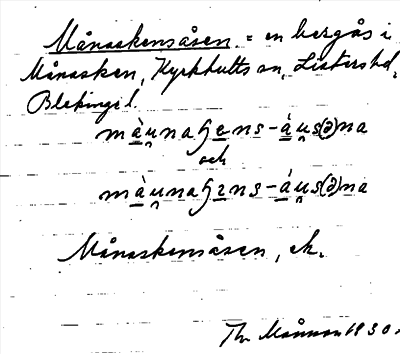 Månaskensåsen = en bergås i
Månasken, Kyrkhults sn, Listers hd,
Blekinge l.
mà̱u̯naɧe̱ns-á̱u̯s(ə)na
och
mà̱u̯naɧɪ̱ns-á̱u̯s(ə)na
Månaskensåsen, ek.
1930.